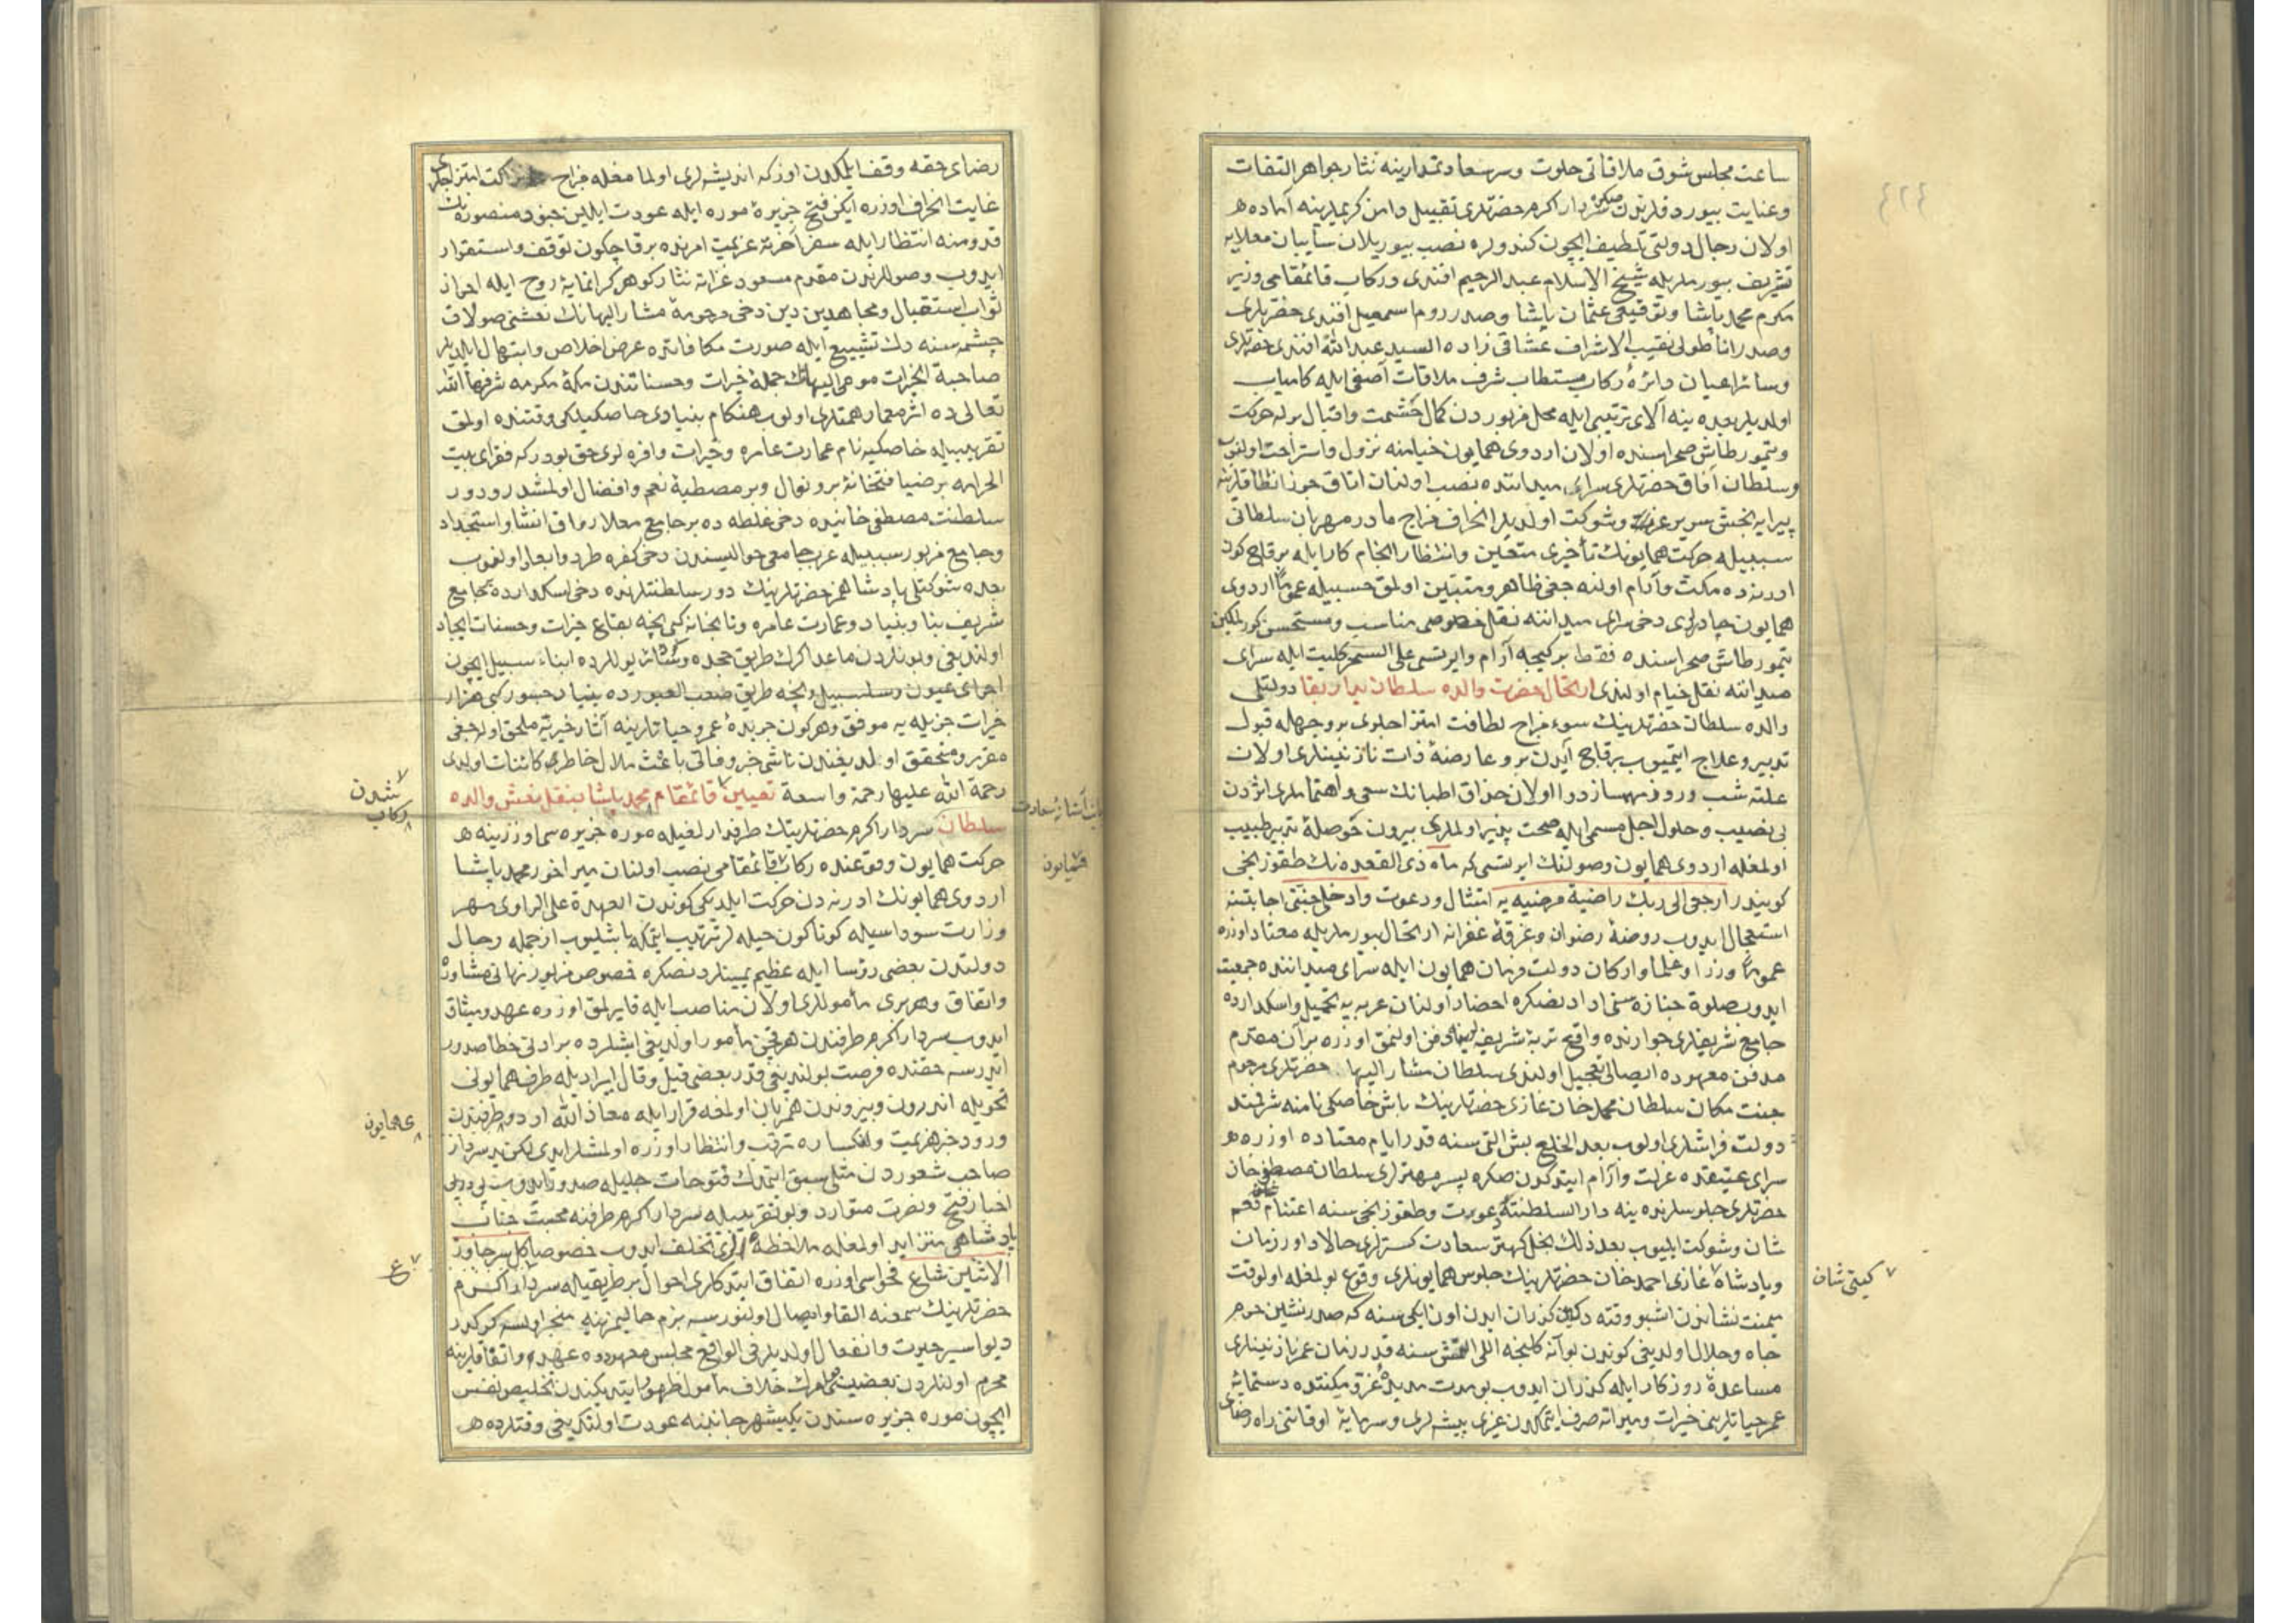 ٤٢٤
ساعت مجلس شوق ملاقاتی حلوت وسر سعادتمدارینه نثار جواهر التفات
وعنایت بیوردقلرندن سردار اکرم حضرتلری تقبیل دامن کریملرینه آماده
اولان رجال دولتی تلطیف ایچون کندولره نصب بیوریلان سایبان معلایه
تشریف بیورملریله شیخ الاسلام عبد الرحیم افندی ورکاب قائمقامی وزیر
مکرم محمد پاشا وتوقیعی عثمان پاشا وصدر روم اسمعیل افندی حضرتلری
وصدر اناطولی نقیب الاشراف عشاقی زاده السید عبد الله افندی حضرتلری
وسائر اعیان دائره رکاب مستطاب شرف ملاقات آصفی ایله کامیاب
اولدیلر بعده ینه آلای ترتیبی ایله محل مزبوردن کمال حشمت واقبال برله حرکت
وتیمورطاش صحراسنده اولان اردوی همایون خیامنه نزول واستراحت اولنوب
وسلطان آفاق حضرتلری سرای میداننده نصب اولنان اتاق جوزا نطاقلرینه
پیرایه بخش سریر عزت وشوکت اولدیلر انحراف مزاج مادر مهربان سلطانی
سببیله حرکت همایونك تأخیری متعین وانتظار انجام کار ایله برقاچ کون
ادرنه ده مکث وآرام اولنه جغی ظاهر ومتبین اولمق حسبیله عموما اردوی
همایون چادرلری دخی سرای میداننه نقل خصوصی مناسب ومستحسن کورلمکین
تیمورطاش صحراسنده فقط برکیجه آرام وایرتسی علی السحر کلیت ایله سرای
میداننه نقل خیام اولندی ارتحال حضرت والده سلطان بدار بقا دولتلی
والده سلطان حضرتلرینك سوء مزاج لطافت امتزاجلری بر وجهله قبول
تدبیر وعلاج ایتمیوب برقاچ آیدن برو عارضهٔ ذات نازنینلری اولان
علته شب وروز مهمساز دوا اولان حذاق اطبانك سعی واهتماملری اثردن
بی نصیب وحلول اجل مسمی ایله صحت پذیر اولملری بیرون حوصلهٔ تدبیر طبیب
اولمغله اردوی همایون وصولنك ایرتسی که ماه ذی القعده نك طقوزنجی
کونیدر ارجعی الی ربك راضیة مرضیه یه امتثال ودعوت وادخلی جنتی اجابتنه
استعجال ایدوب روضهٔ رضوان وغرفهٔ غفرانه ارتحال بیورملریله معتاد اوزره
عموما وزرا وعلما وارکان دولت فرمان همایون ایله سرای میداننده جمعیت
ایدوب صلوة جنازه سنی ادادنصکره احضار اولنان عربه یه تحمیل واسکدارده
جامع شریفلری جوارنده واقع تربهٔ شریفه لرینه دفن اولنمق اوزره بر آن مقدم
مدفن معهوده ایصالی تعجیل اولندی سلطان مشار الیها حضرتلری مرحوم
جنت مکان سلطان محمد خان غازی حضرتلرینك باش خاصکی نامنه شرفمند
دولت فراشلری اولوب بعد الخلع بش التی سنه قدر ایام معتاده اوزره
سرای عتیقده عزلت وآرام ایتدکدن صکره پسر مهترلری سلطان مصطفی خان
حضرتلری جلوسلرنده ینه دار السلطنته عودت وطقوزنجی سنه اغتنام
شان وشوکت ایلیوب بعد ذلك نجل کهتر سعادت کسترلری حالا داور زمان
وپادشاه غازی احمد خان حضرتلرینك جلوس همایونلری وقوع بولمغله اولوقت
میمنت نشاندن اشبو وقته دکین کذران ایدن اون ایکی سنه که صدر نشین حرم
جاه وجلال اولدیغی کوندن بو آنه کلنجه اللی التمش سنه قدر زمان عمر نازنینلری
مساعدهٔ روزکار ایله کذران ایدوب بو مدت مدیده
عمر حیاتلرینی خیرات ومبراته صرف ایتمکدن غیری پیشه لری وسرمایهٔ اوقاتنی راه رضای
کیتی شان
رضای حقه وقف ایلمکدن اوزکه اندیشه لری اولمامغله مزاج نزاکت امتزاجلری
غایت انحراف اوزره ایکن فتح جزیرهٔ موره ایله عودت ایلین جنود منصوره نك
قدومنه انتظار ایله سفر آخرته عزیمت امرنده برقاچ کون توقف واستقرار
ایدوب وصوللرندن مقدم مسعود غزاته نثار کوهر کرانمایهٔ روح ایله احراز
ثواب استقبال ومجاهدین دین دخی مرحومهٔ مشار الیهانك نعشنی صولاق
چشمه سنه دك تشییع ایله صورت مکافاتده عرض اخلاص وابتهال ایلدیلر
صاحبة الخیرات مومی الیهانك جملهٔ خیرات وحسناتندن مکهٔ مکرمه شرفها الله
تعالی ده اثر معمار همتلری اولوب هنکام بنیادی خاصکیلکی وقتنده اولمق
تقریبیله خاصکیه نام عمارت عامره وخیرات وافره لری حق بودرکه فقرای بیت
الحرامه بر ضیافتخانهٔ بر ونوال وبر مصطبهٔ نعم وافضال اولمشدر ودور
سلطنت مصطفی خانیده دخی غلطه ده بر جامع معلا رواق انشا واستجداد
وجامع مزبور سببیله عرب جامعی حوالیسندن دخی کفره طرد وابعاد اولنوب
بعده شوکتلی پادشاهمز حضرتلرینك دور سلطنتلرنده دخی اسکدارده بر جامع
شریف بنا وبنیاد وعمارت عامره ونانخانه کبی نیجه بقاع خیرات وحسنات ایجاد
اولندیغی وبونلردن ماعدا کرك طریق حجده وسائر یوللرده ابناء سبیل ایچون
اجرای عیون وسلسبیل ونیجه طریق صعب العبورده بنیاد جسور کبی هزار
خیرات جزیله یه موفق وهرکون جریدهٔ عمر وحیاتلرینه آثار خیریه ملحق اوله جغی
مقرر ومتحقق اولدیغندن ناشی خبر وفاتی باعث ملال خاطر کائنات اولدی
رحمة الله علیها رحمة واسعة تعیین قائمقام محمد پاشا بنقل نعش والده
سلطان سردار اکرم حضرتلرینك طرفدار لغیله موره جزیره سی اوزرینه
حرکت همایون وقوعنده رکاب قائمقامی نصب اولنان میر اخور محمد پاشا
اردوی همایونك ادرنه دن حرکت ایلدیکی کوندن العهدة علی الراوی مهر
وزارت سوداسیله کوناکون حیله لر ترتیب ایتمکه باشلیوب ازجمله رجال
دولتدن بعضی رؤسا ایله عظیم یمینلردنصکره خصوص مزبور نهانی مشاوره
واتفاق وهربری مأموللری اولان مناصب ایله قایرلمق اوزره عهد ومیثاق
ایدوب سردار اکرم طرفندن هر قنغی مأمور اولدیغی ایشلرده بر ادنی خطا صدور
ایدرسه حقنده فرصت بولندیغی قدر بعضی قیل وقال ایراد یله طرف همایونی
تحویله اندرون وبیروندن همزبان اولمغه قرار ایله معاذ الله اردو طرفندن
ورود خبر هزیمت وانکساره ترقب وانتظار اوزره اولمشلر ایدی لکن بو سردار
صاحب شعوردن مثلی سبق ایتمدك فتوحات جلیله صدور ایدوب
اخبار فتح ونصرت متوارد وبو تقریبیله سردار اکرم طرفنه محبت جناب
پادشاهی متزاید اولمغله ملاحظه لری تخلف ایدوب خصوصا کل سر جاوز
الاثنین شاع فحواسی اوزره اتفاق ایتدکلری احوال بر طریقیله سردار اکرم
حضرتلرینك سمعنه القا وایصال اولنورسه بزم حالیمز نه یه منجر اولسه کرکدر
دیو اسیر حیرت وانفعال اولدیلر فی الواقع مجلس معهودده عهد واتفاقلرینه
محرم اولنلردن بعضیسی خلاف مأمول ظهور ایتدیکندن تخلیص نفس
ایچون موره جزیره سندن یکیشهر جانبنه عودت اولندیغی وقتلرده
شدن
رکاب
همایون
ع